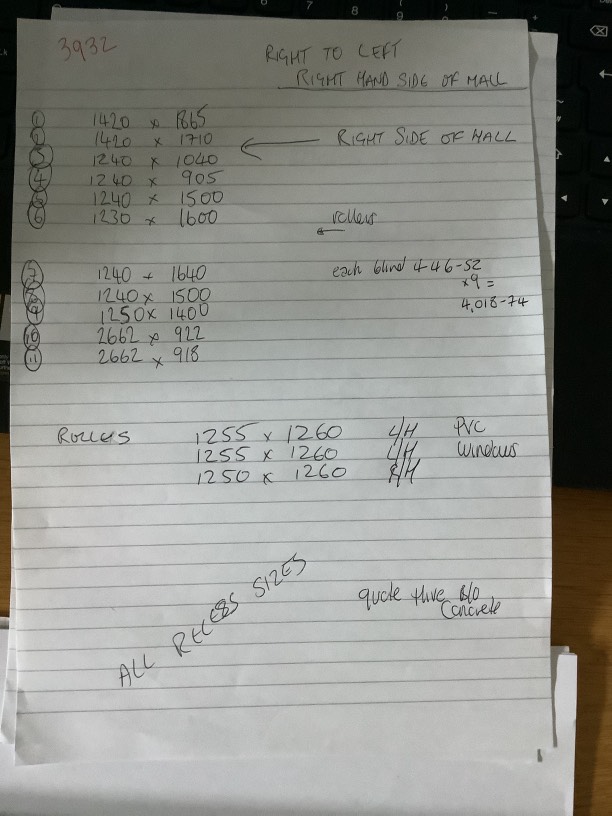 3932
RIGHT TO LEFT
RIGHT HAND SIDE OF MALL
① 1420 x 1865
1420 x 1710
③ 1240 x 1040
RIGHT SIDE OF MALL
④ 1240 x 905
⑤ 1240 x 1500
⑥ 1230 x 1600
rollers
⑦ 1240 x 1640
each blind 446-52
1240 x 1500
x9 =
⑨ 1250 x 1400
4,018-74
⑩ 2662 x 922
⑪ 2662 x 918
ROLLERS 1255 x 1260 L/H PVC
1255 x 1260 L/H WINDOWS
1250 x 1260 R/H
ALL RECESS SIZES
quote
Concrete